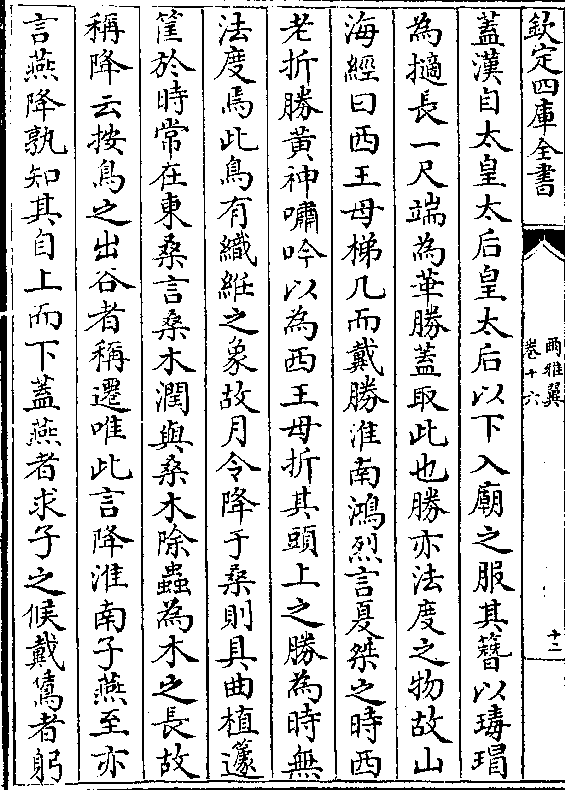 欽定四庫全書
爾雅翼
卷十六
十二
蓋漢自太皇太后皇太后以下入廟之服其簪以瑇瑁
為擿長一尺端為華勝蓋取此也勝亦法度之物故山
海經曰西王母梯几而戴勝淮南鴻烈言夏桀之時西
老折勝黄神嘯吟以為西王母折其頭上之勝為時無
法度焉此鳥有織紝之象故月令降于桑則具曲植籧
筐於時常在東桑言桑木潤與桑木除蟲為木之長故
稱降云按鳥之出谷者稱遷唯此言降淮南子燕至亦
言燕降孰知其自上而下蓋燕者求子之候戴鵀者躬